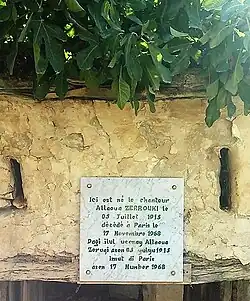 Ici est né le chanteur
Allaoua ZERROUKI le
03 Juillet 1915
décédé à Paris le
17 Novembre 1968
Dagi ilul ucennay Allaoua
Zeruqi asen 03 yulyu 1915
Imut di Paris
asen 17 Number 1968